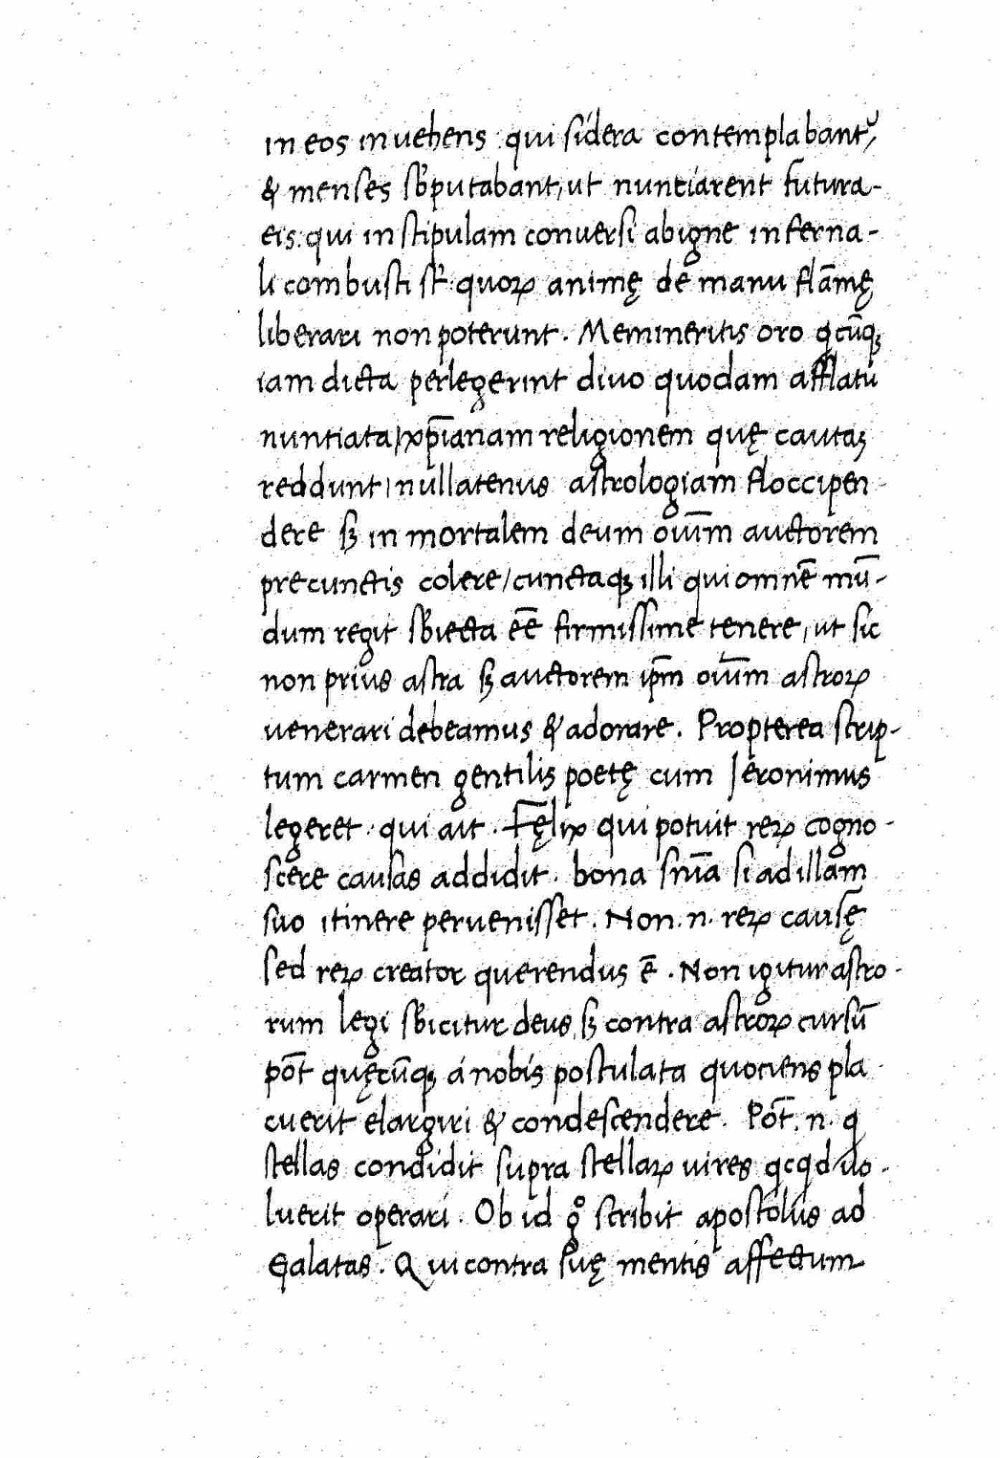 in eos inuehens : qui sidera contemplabant᷑,
& menses sb̕putabant, ut nuntiarent futura-
eis: qui in stipulam conuersi ab igne inferna-
li combusti st̕: quoꝝ animę de manu flāmę
liberari non poterunt. Memineritis oro q̇cūqꝫ
iam dicta perlegerint diuo quodam afflatu
nuntiata / xp̄ianam religionem quę cautaꝫ
reddunt, nullatenus astrologiam floccipen-
dere sꝫ in mortalem deum ouīm auctorem
pre cunctis colere / cunctaqꝫ illi qui omnē mū-
dum regit sb̕iecta eē firmissime tenere, ut sic
non prius astra sꝫ auctorem ip̄m ouīm astroꝝ
uenerari debeamus & adorare. Propterea scrip-
tum carmen gentilis poetę cum Jeronimus
legeret : qui ait. Fęlix qui potuit reꝝ cogno-
scere causas addidit. bona sn̄ia si ad illam
suo itinere peruenisset. Non .n. reꝝ causę
sed reꝝ creator querendus ē. Non igitur astro-
rum legi sb̕icitur deus, sꝫ contra astroꝝ cursū
pōt quęcūqꝫ á nobis postulata quotiens pla-
cuerit elargiri & condescendere. Pōt .n. q
stellas condidit supra stellaꝝ uires qcqd uo-
luerit operari. Ob id gͦ scribit apostolus ad
Galatas. Qui contra suę mentis affectum